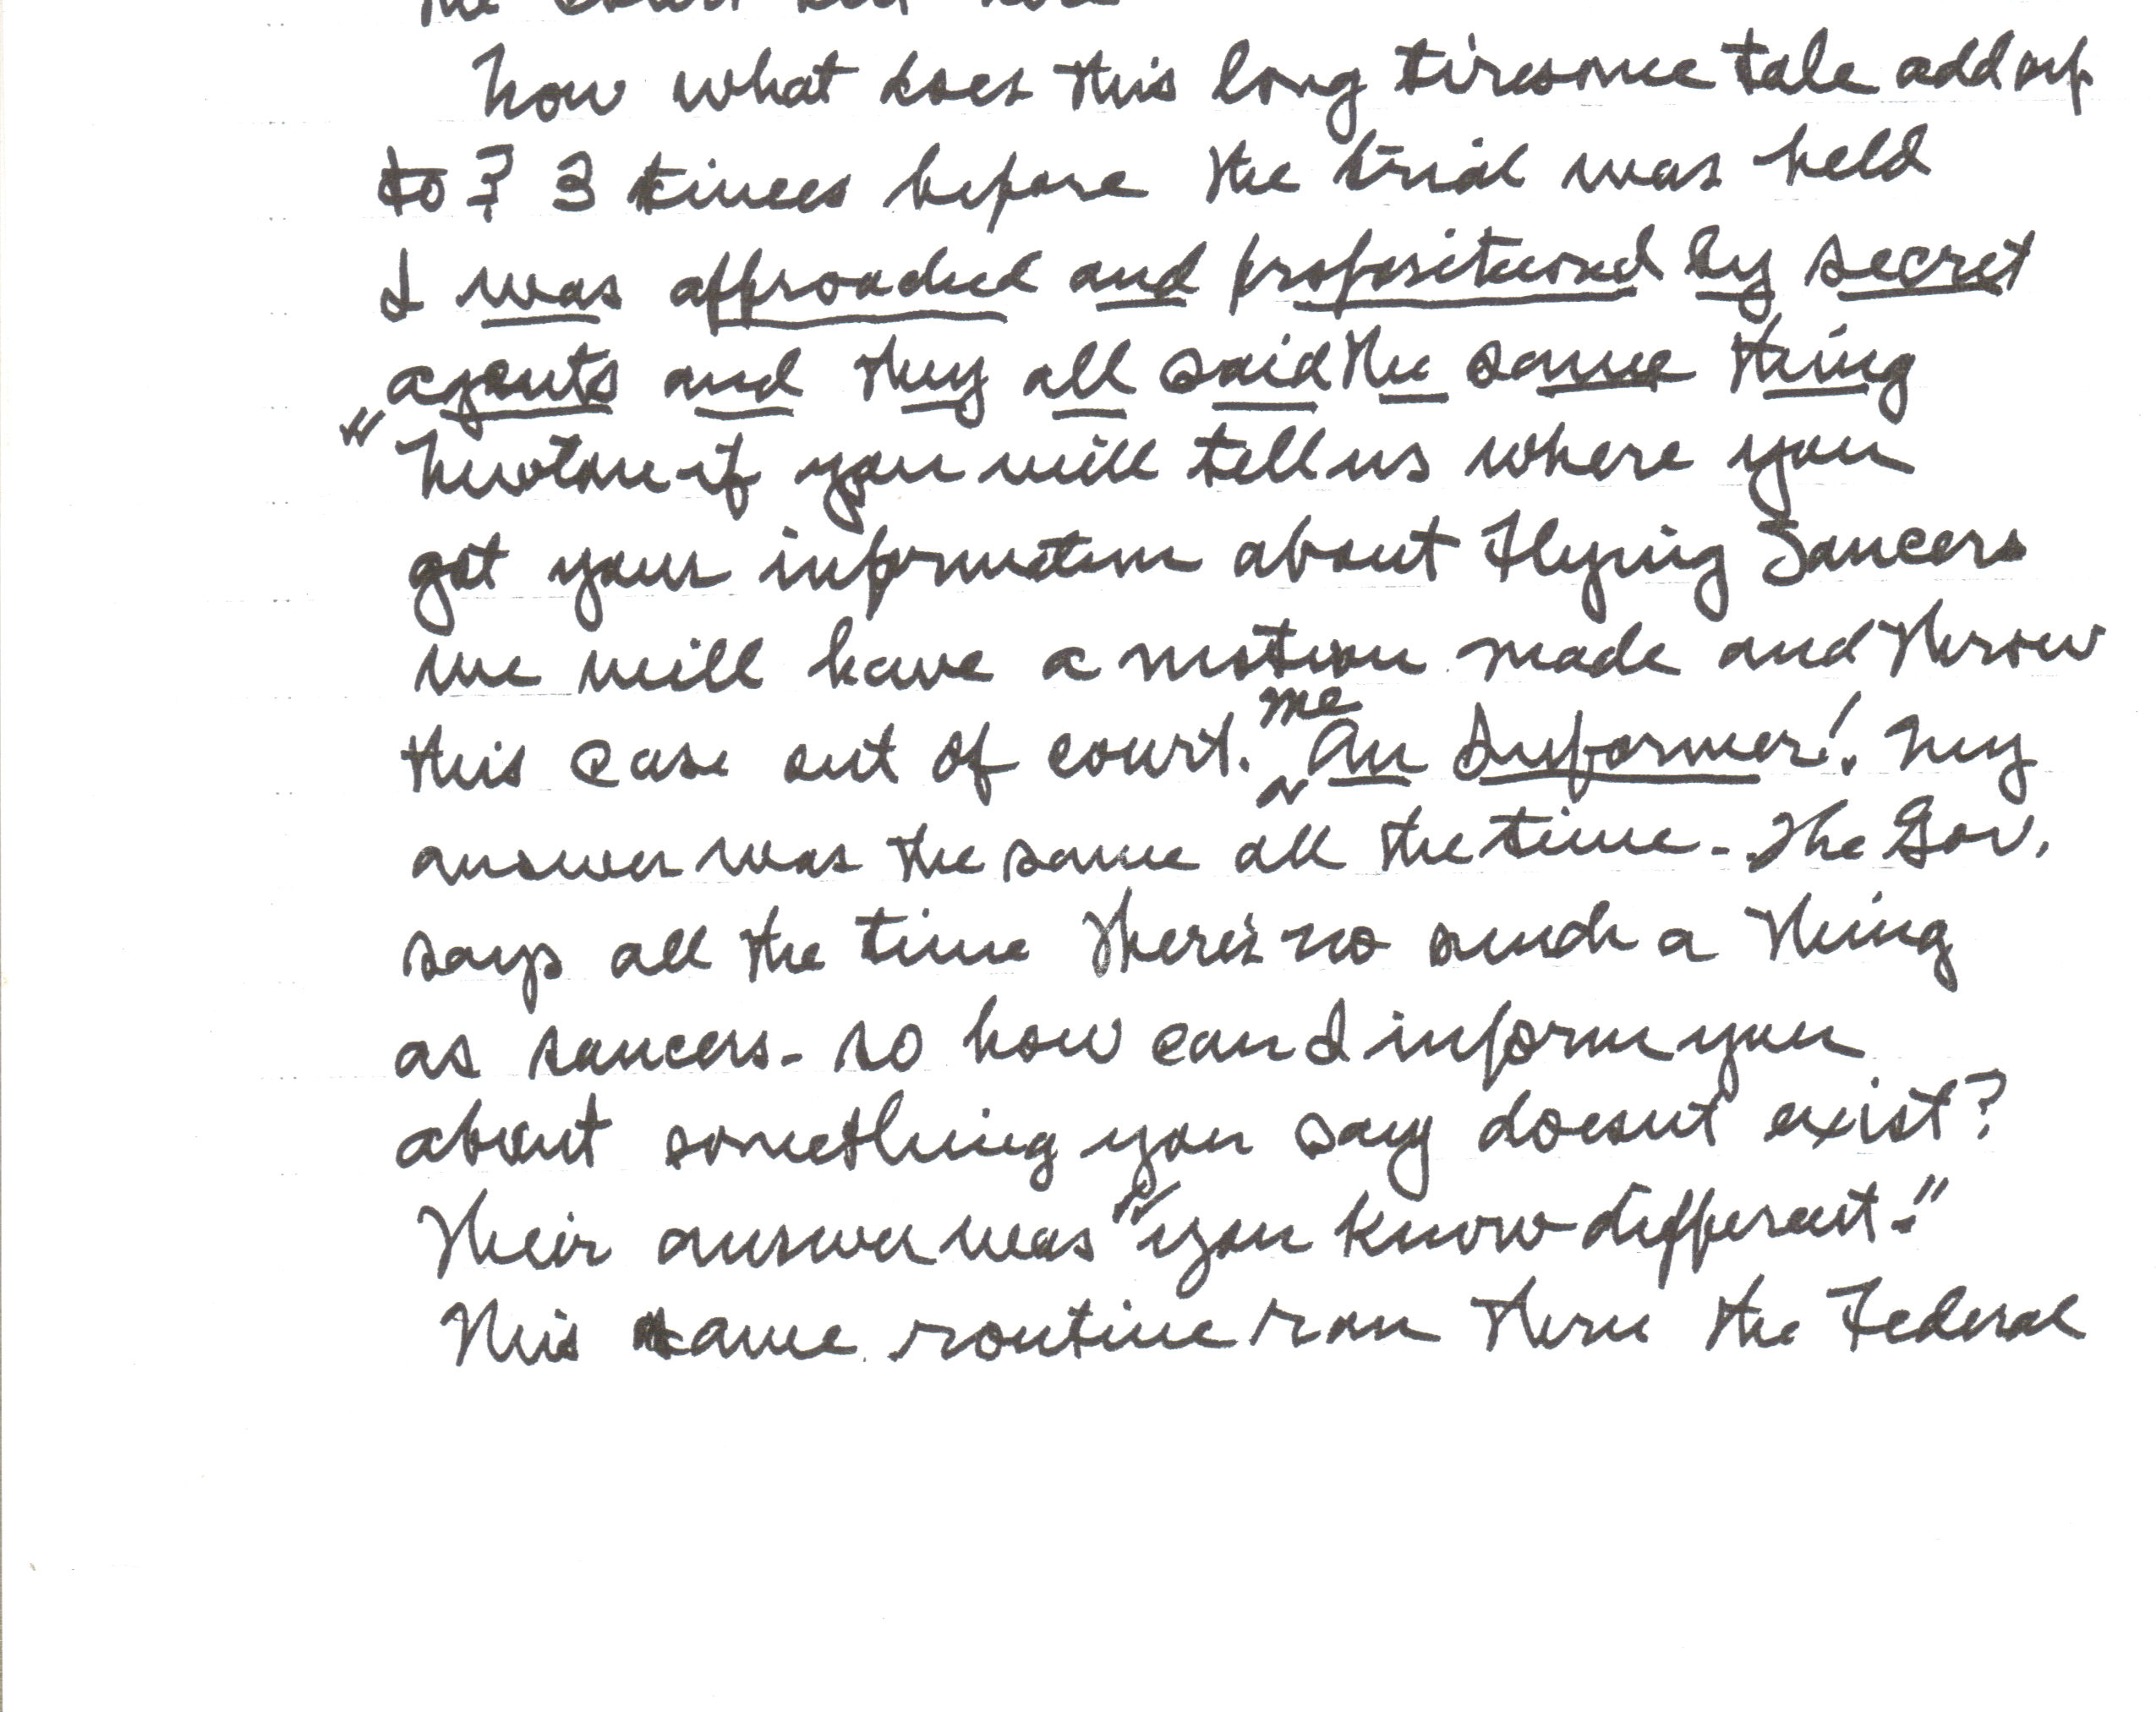 Now what does this long tiresome tale add up
to? 3 times before the trial was held
I was approached and propositioned by secret
agents and they all said the same thing
"Newton if you will tell us where you
got your information about Flying Saucers
we will have a motion made and throw
this case out of court. me An Informer! My
answer was the same all the time - The Gov.
says all the time there's no such a thing
as saucers - so how can I inform you
about something you say doesnt exist?
Their answer was "you know different."
This same routine ran thru the Federal